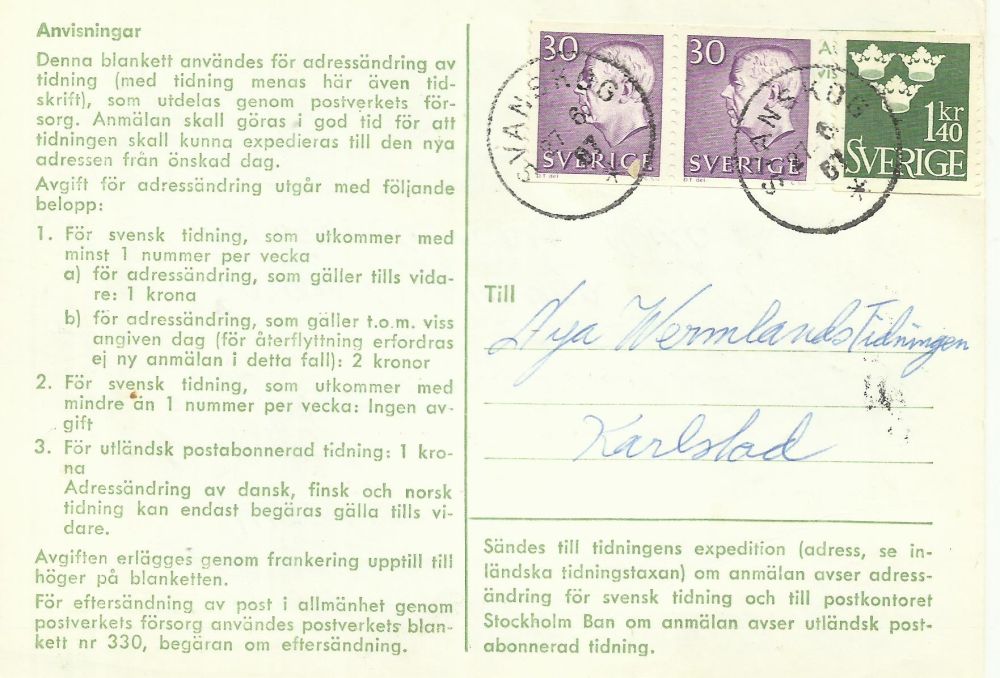 Anvisningar
Denna blankett användes för adressändring av
tidning (med tidning menas här även tid-
skrift), som utdelas genom postverkets för-
sorg. Anmälan skall göras i god tid för att
tidningen skall kunna expedieras till den nya
adressen från önskad dag.
Avgift för adressändring utgår med följande
belopp:
1. För svensk tidning, som utkommer med
minst 1 nummer per vecka
a) för adressändring, som gäller tills vida-
re: 1 krona
b) för adressändring, som gäller t.o.m. viss
angiven dag (för återflyttning erfordras
ej ny anmälan i detta fall): 2 kronor
2. För svensk tidning, som utkommer med
mindre än 1 nummer per vecka: Ingen av-
gift
3. För utländsk postabonnerad tidning: 1 kro-
na
Adressändring av dansk, finsk och norsk
tidning kan endast begäras gälla tills vi-
dare.
Avgiften erlägges genom frankering upptill till
höger på blanketten.
För eftersändning av post i allmänhet genom
postverkets försorg användes postverkets blan-
kett nr 330, begäran om eftersändning.
30
SVERIGE
30
SVERIGE
1 kr
40
SVERIGE
SVANSKOG
SVANSKOG
Till
Nya Wermlands Tidningen
Karlstad
Sändes till tidningens expedition (adress, se in-
ländska tidningstaxan) om anmälan avser adress-
ändring för svensk tidning och till postkontoret
Stockholm Ban om anmälan avser utländsk post-
abonnerad tidning.